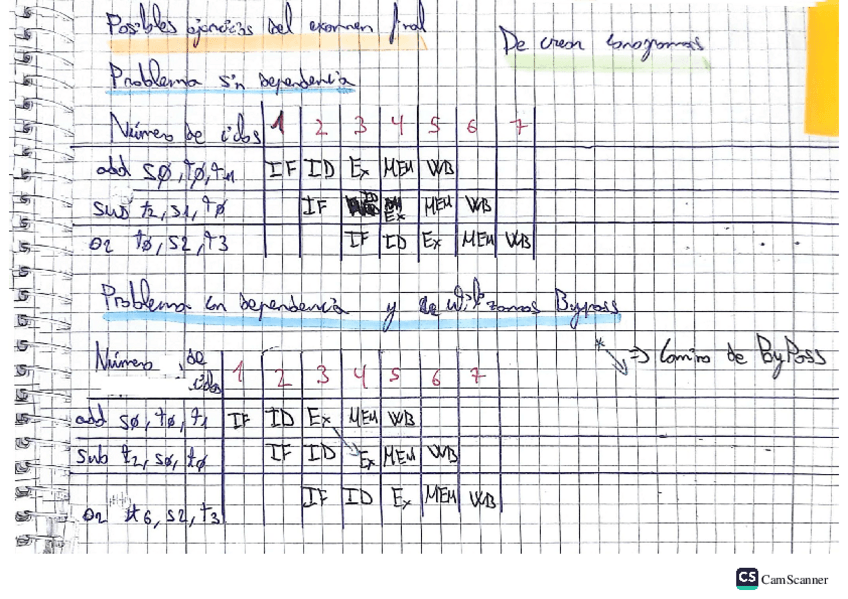 Posibles ejercicios del examen final
De crear conogramas
Problema sin dependencia
Número de ciclos 1 2 3 4 5 6 7
add sø, tø, t1 IF ID Ex MEM WB
sub t2, s1, tø IF ID Ex MEM WB
or tø, s2, t3 IF ID Ex MEM WB
Problema con dependencia y se utilizamos Bypass
* => Camino de ByPass
Número de ciclos 1 2 3 4 5 6 7
add sø, tø, t1 IF ID Ex MEM WB
sub t2, sø, tø IF ID Ex MEM WB
or t6, s2, t3 IF ID Ex MEM WB
CS CamScanner